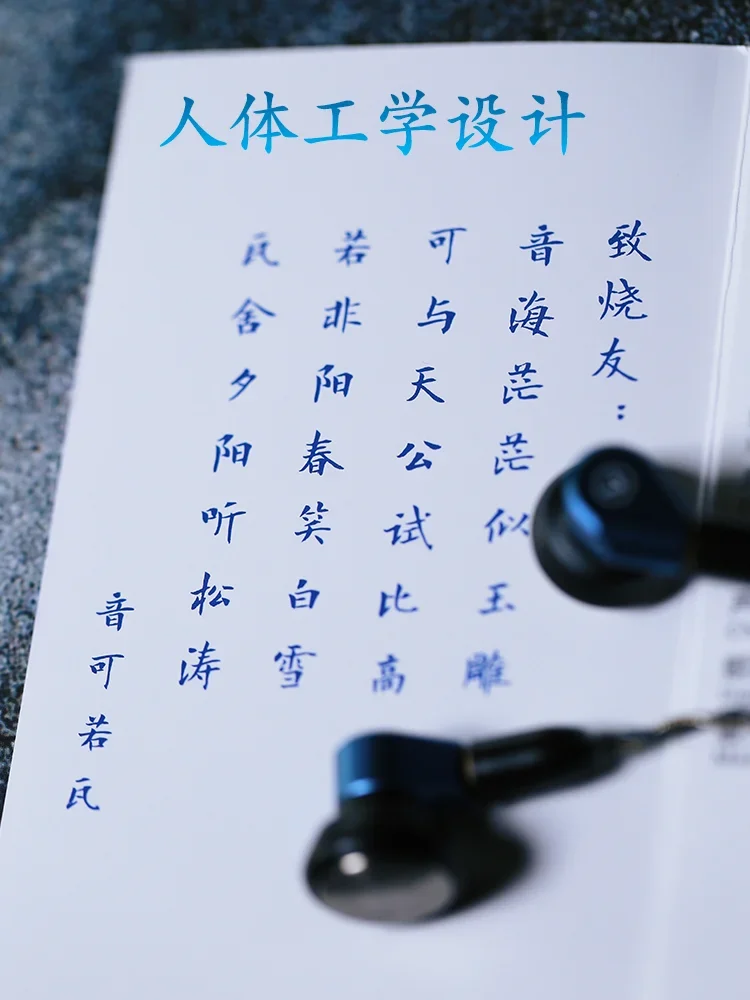 人体工学设计
致烧友：
音海茫茫似玉雕
可与天公试比高
若非阳春笑白雪
瓦舍夕阳听松涛
音可若瓦